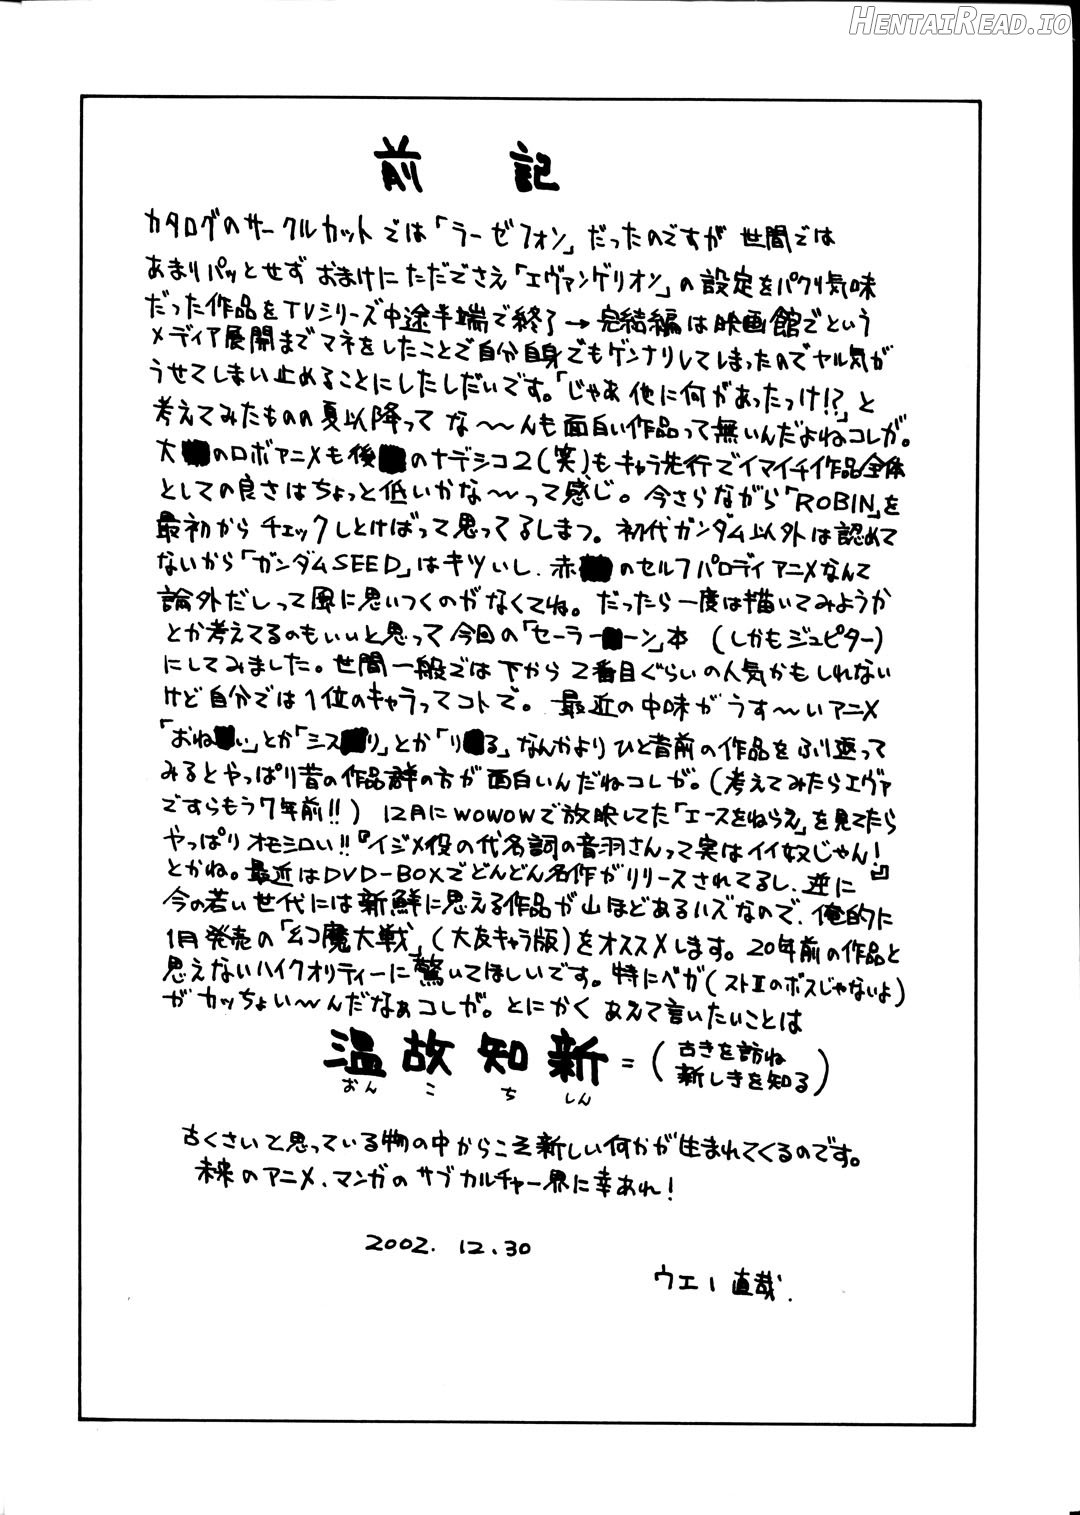 HENTAIREAD.IO
前 記
カタログのサークルカットでは「ラーゼフォン」だったのですが 世間では
あまりパッとせず おまけに ただでさえ「エヴァンゲリオン」の設定をパクリ気味
だった作品をTVシリーズ中途半端で終了→完結編は映画館でという
メディア展開までマネをしたことで自分自身でもゲンナリしてしまったのでヤル気が
うせてしまい止めることにしたしだいです。「じゃあ他に何があったっけ!?」と
考えてみたものの夏以降って な〜〜んも面白い作品って無いんだよねコレが。
大 のロボアニメも後 のナデシコ2(笑)もキャラ先行でイマイチ作品全体
としての良さはちょっと低いかな〜〜って感じ。今さらながら「ROBIN」を
最初から チェックしとけばって思ってるしまつ。初代ガンダム以外は認めて
ないから「ガンダムSEED」はキツいし、赤 のセルフパロディアニメなんて
論外だしって風に思いつくのがなくてね。だったら一度は描いてみようか
とか考えてるのもいいと思って今回の「セーラー ーン」本 (しかもジュピター)
にしてみました。世間一般では下から2番目ぐらいの人気かもしれない
けど自分では1位のキャラってコトで。最近の中味がうす〜〜いアニメ
「おね い」とか「シス リ」とか「リ る」なんかよりひと昔前の作品をふり返って
みるとやっぱり昔の作品群の方が面白いんだねコレが。(考えてみたらエヴァ
ですらもう7年前!!) 12月にWOWOWで放映してた「エースをねらえ」を見てたら
やっぱりオモシロい!!『イジメ役の代名詞の音羽さんって実はイイ奴じゃん!』
とかね。最近はDVD-BOXでどんどん名作がリリースされてるし、逆に
今の若い世代には新鮮に思える作品が山ほどあるハズなので、俺的に
1月発売の「幻魔大戦」(大友キャラ版)をオススメします。20年前の作品と
思えないハイクオリティーに驚いてほしいです。特にベガ(ストⅡのボスじゃないよ)
がカッちょい〜〜んだなぁコレが。とにかく あえて言いたいことは
温故知新=(古きを訪ね
新しきを知る)
おん こ ち しん
古くさいと思っている物の中からこそ新しい何かが生まれてくるのです。
未来のアニメ、マンガのサブカルチャー界に幸あれ!
2002. 12. 30
ウエー直哉.